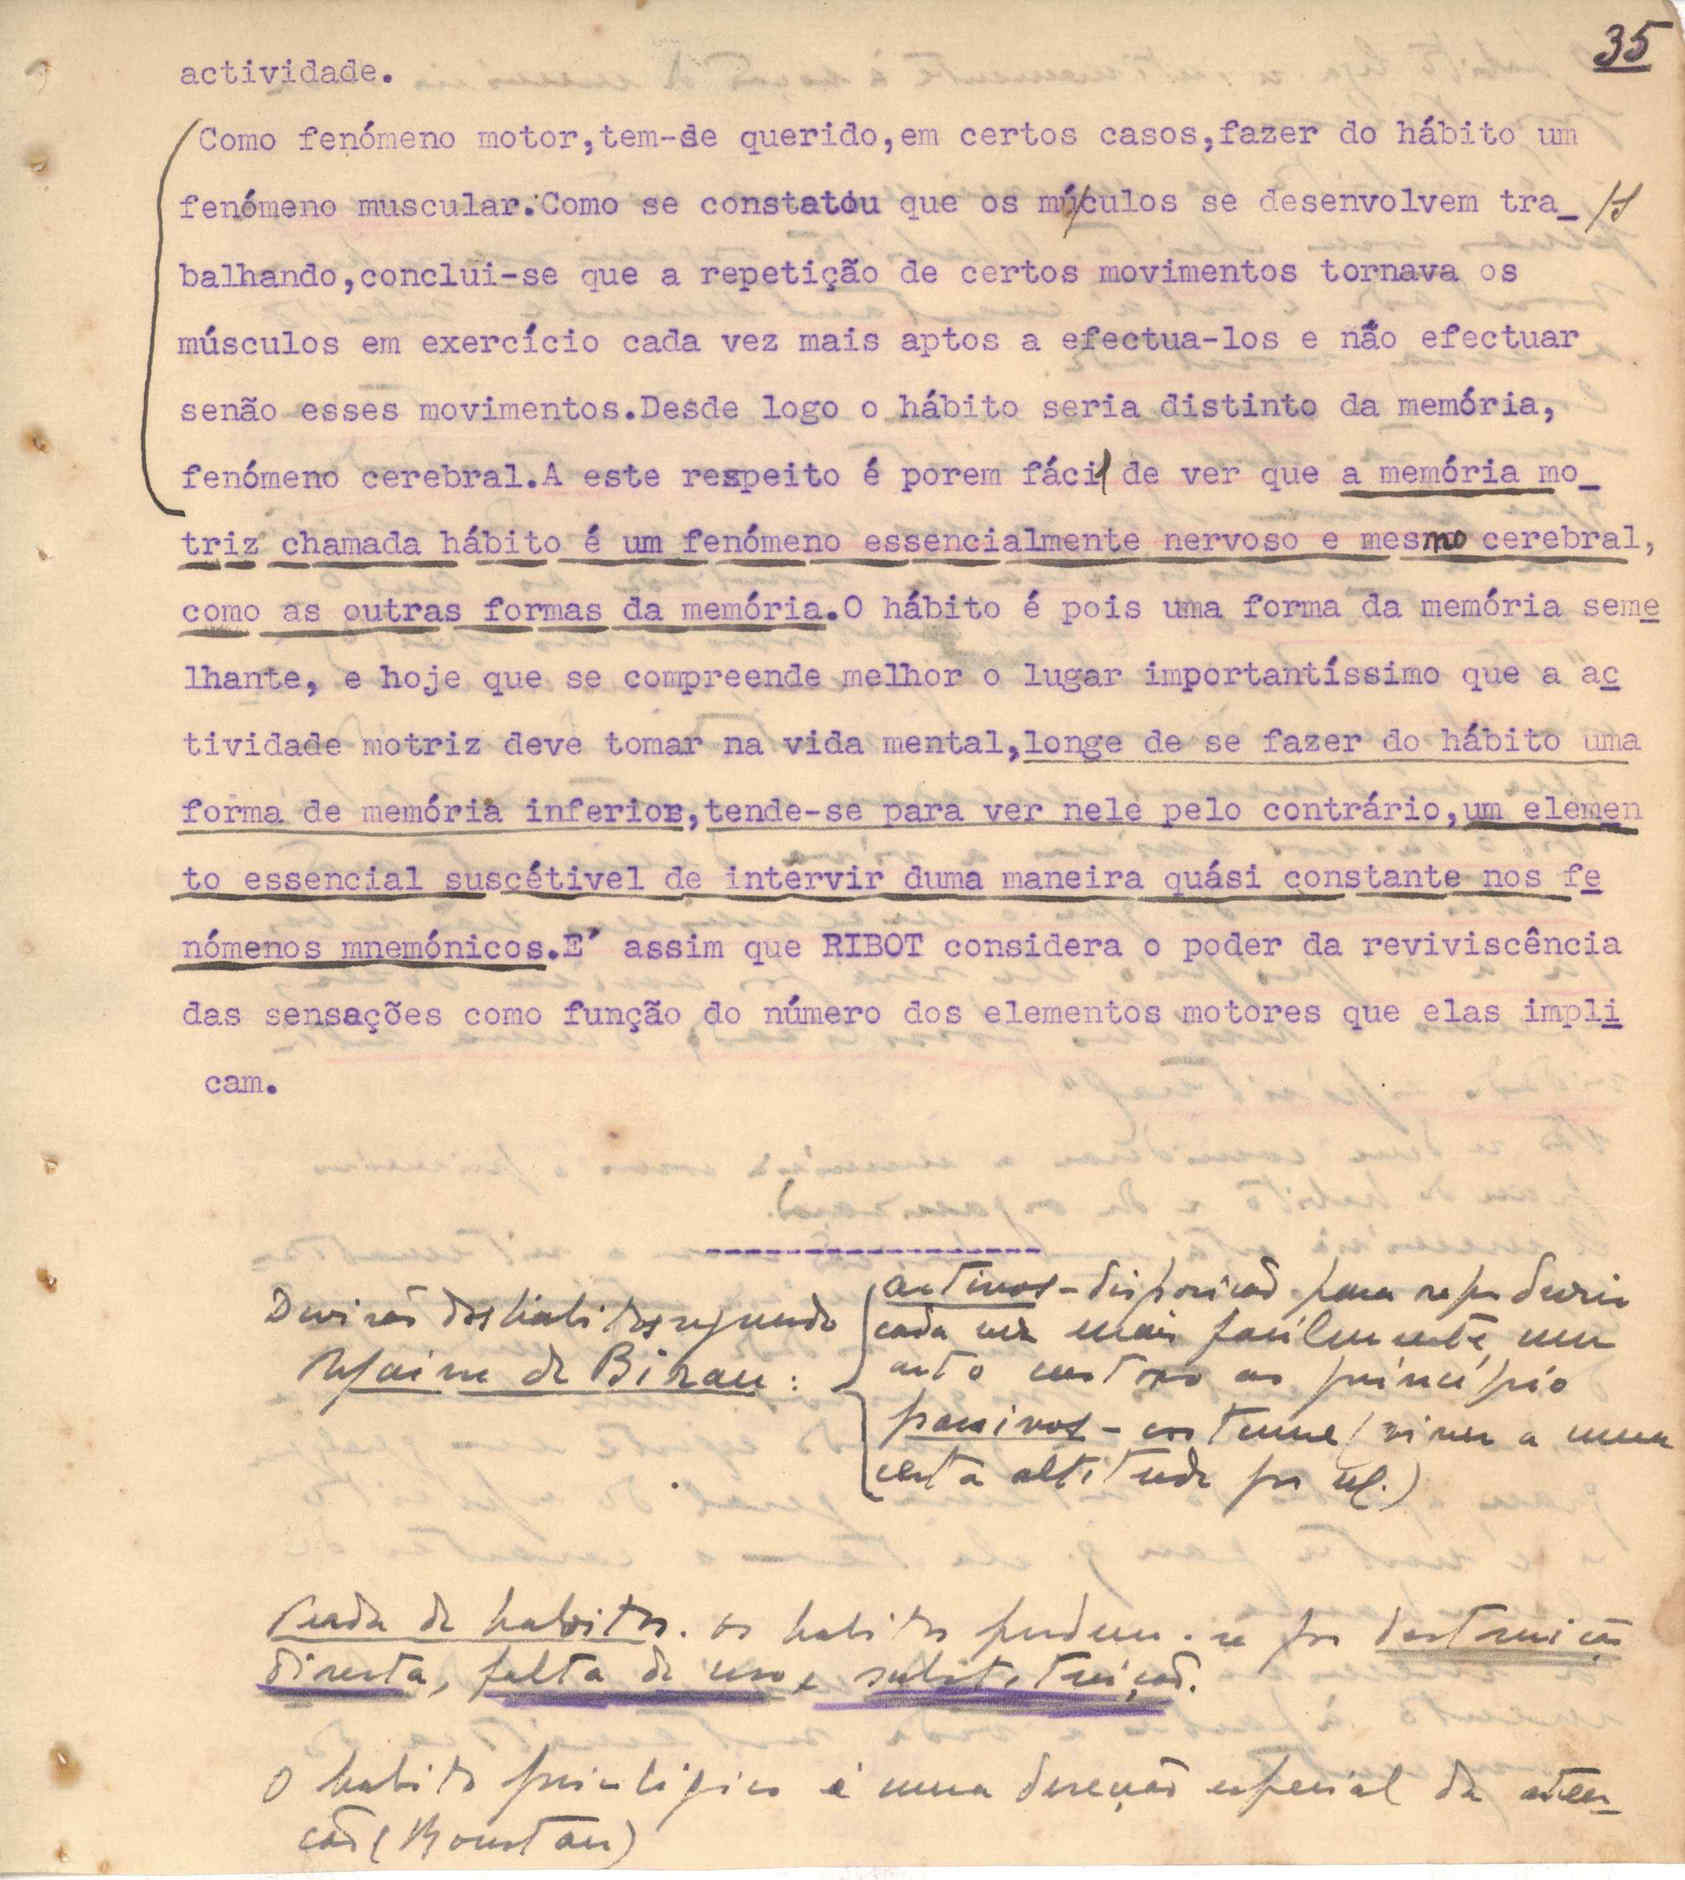 35
actividade.
Como fenómeno motor,tem-se querido,em certos casos,fazer do hábito um
fenómeno muscular.Como se constatou que os múculos se desenvolvem tra_ /s
balhando,conclui-se que a repetição de certos movimentos tornava os
músculos em exercício cada vez mais aptos a efectua-los e não efectuar
senão esses movimentos.Desde logo o hábito seria distinto da memória,
fenómeno cerebral.A este respeito é porem fácil de ver que a memória mo_
triz chamada hábito é um fenómeno essencialmente nervoso e mesmo cerebral,
como as outras formas da memória.O hábito é pois uma forma da memória seme
lhante, e hoje que se compreende melhor o lugar importantíssimo que a ac
tividade motriz deve tomar na vida mental,longe de se fazer do hábito uma
forma de memória inferior,tende-se para ver nele pelo contrário,um elemen
to essencial suscétivel de intervir duma maneira quási constante nos fe
nómenos mnemónicos.E´ assim que RIBOT considera o poder da reviviscência
das sensações como função do número dos elementos motores que elas impli
cam.
----------------
Divisão dos habitos segundo
Maine de Biran :
activos - disposição para reproduzir
cada vez mais facilmente um
acto custoso ao princípio
passivos - costume (viver a uma
certa altitude por ex.)
Perda de habitos. Os habitos perdem-se por destruição
directa, falta de uso e substituição.
O habito psicologico é uma direcção especial da aten_
ção (Roustan)